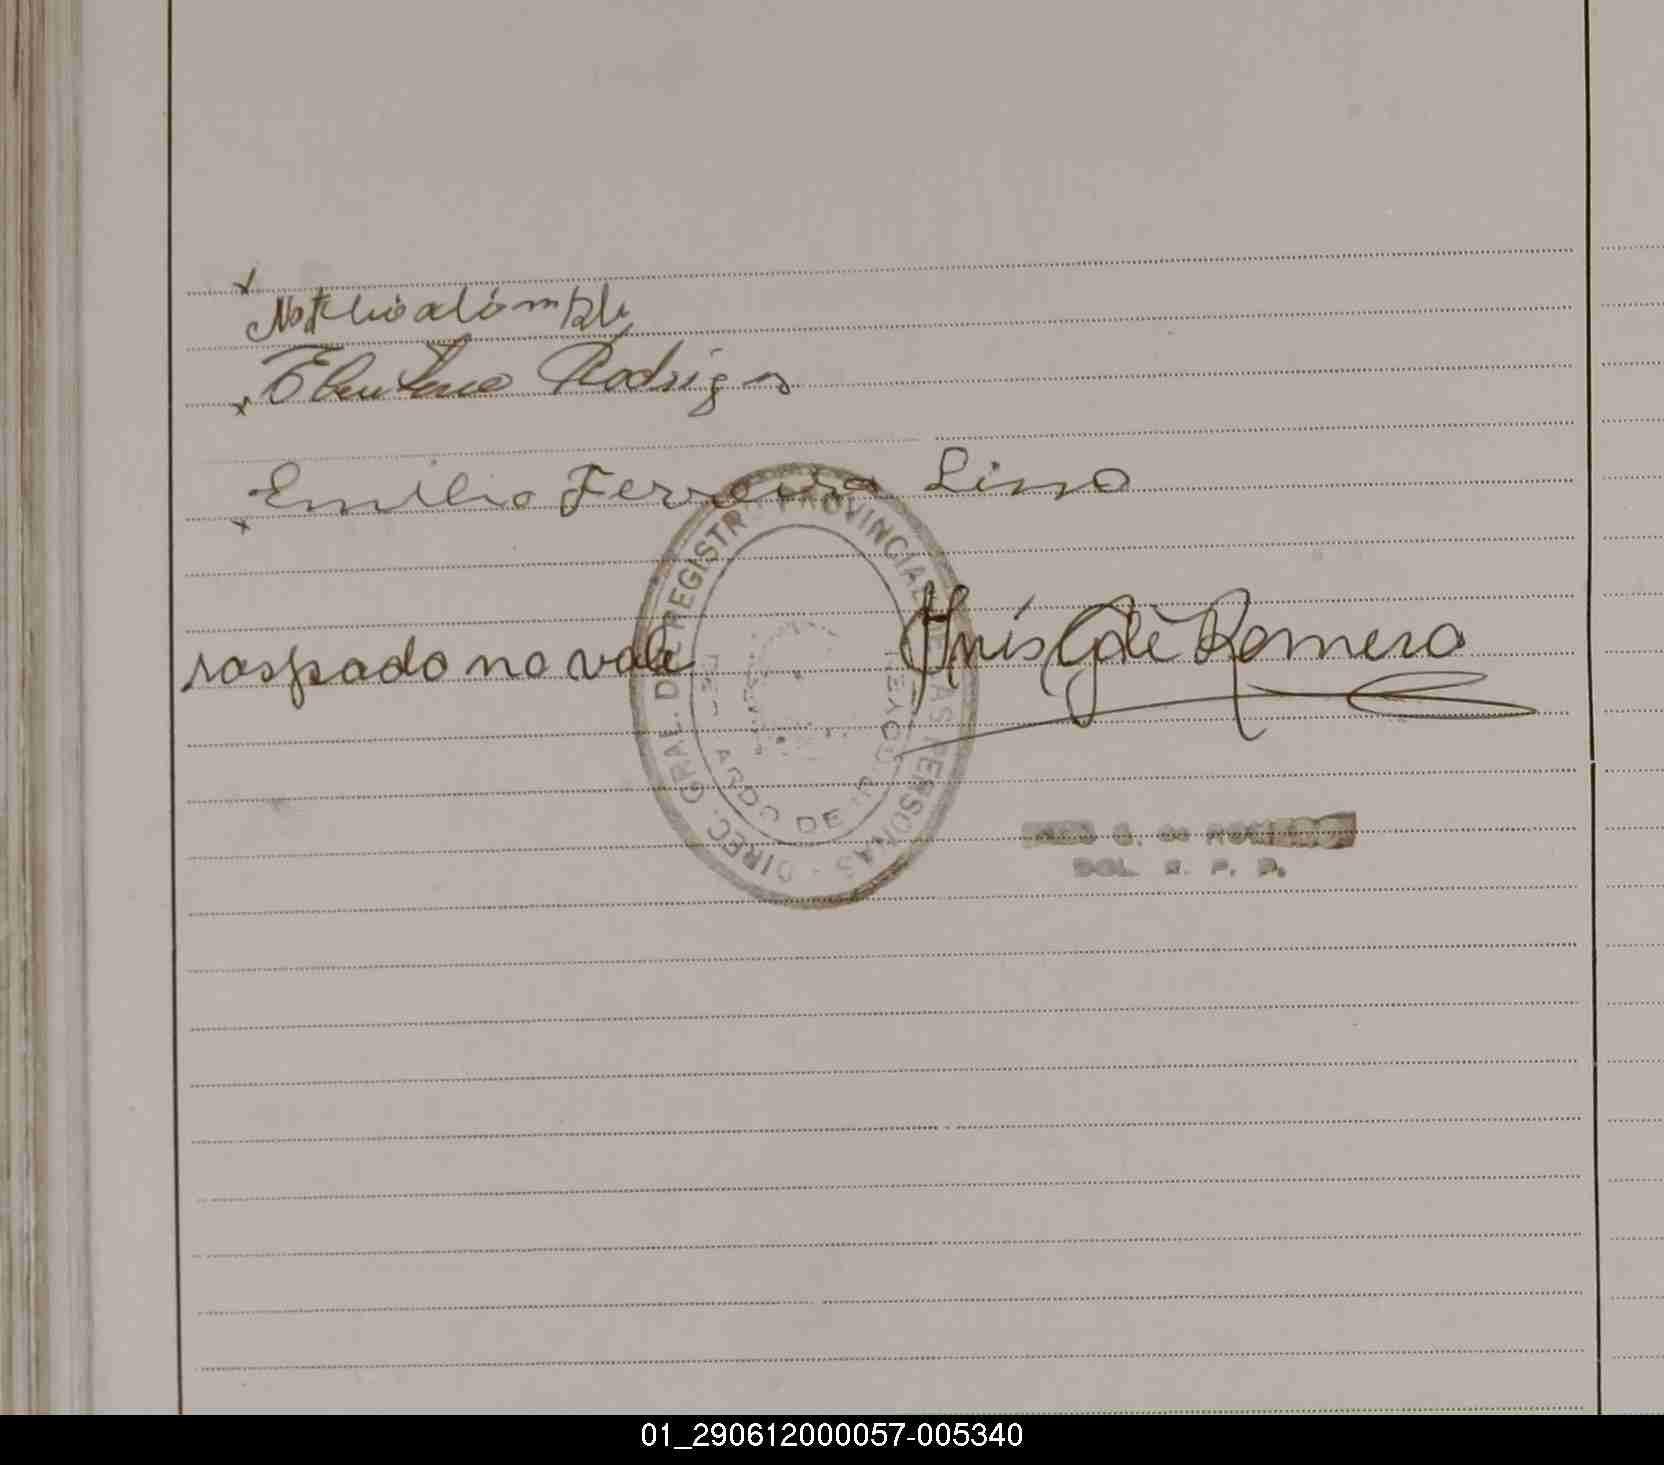 Eleuterio Rodrigs
Emilio Ferreira Lino
raspado no vale
Inés G de Romero
DIREC. GRAL. DEL REGISTR PROVINCIAL LAS PERSONAS
DE
G. de ROMERO
DOL. R. P. P.
01_290612000057-005340